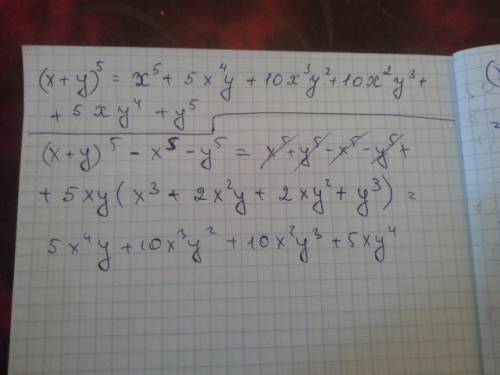 (x+y)⁵ = x⁵ + 5x⁴y + 10x³y² + 10x²y³ +
+ 5xy⁴ + y⁵
(x+y)⁵ - x⁵ - y⁵ = x⁵ + y⁵ - x⁵ - y⁵ +
+ 5xy(x³ + 2x²y + 2xy² + y³) =
5x⁴y + 10x³y² + 10x²y³ + 5xy⁴